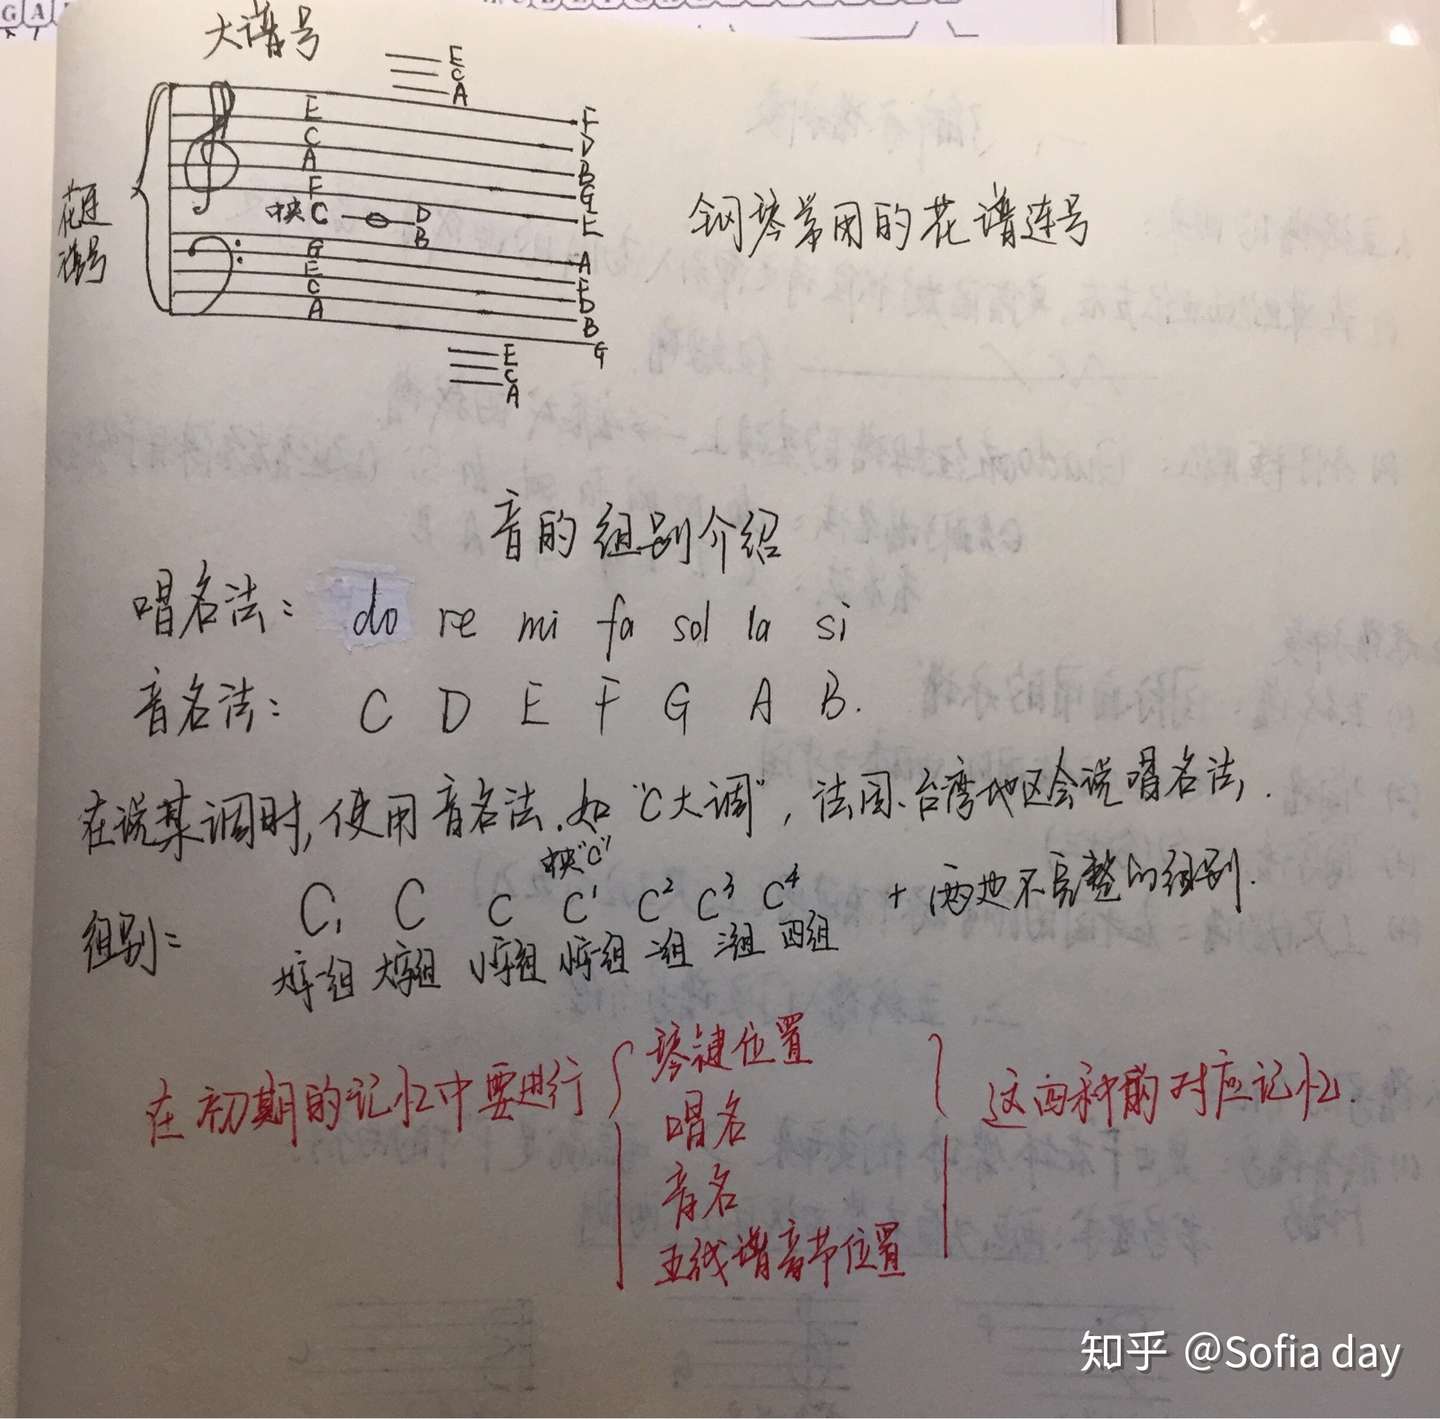 G A
大谱号
E
C
A
E
C
A
F
F
D
B
G
E
中央 C
D
B
花连
谱号
钢琴常用的花谱连号
G
E
C
A
A
F
D
B
G
E
C
A
音的组别介绍
唱名法: do re mi fa sol la si
音名法: C D E F G A B.
在说某调时,使用音名法.如“C大调”,法国、台湾地区会说唱名法,.
中央“C”
组别: C₁ C c c¹ c² c³ c⁴ + 两边不完整的组别.
大字一组 大字组 小字组 小字一组 二组 三组 四组
在初期的记忆中要进行 琴键位置 这四种的对应记忆.
唱名
音名
五线谱音节位置
知乎 @Sofia day